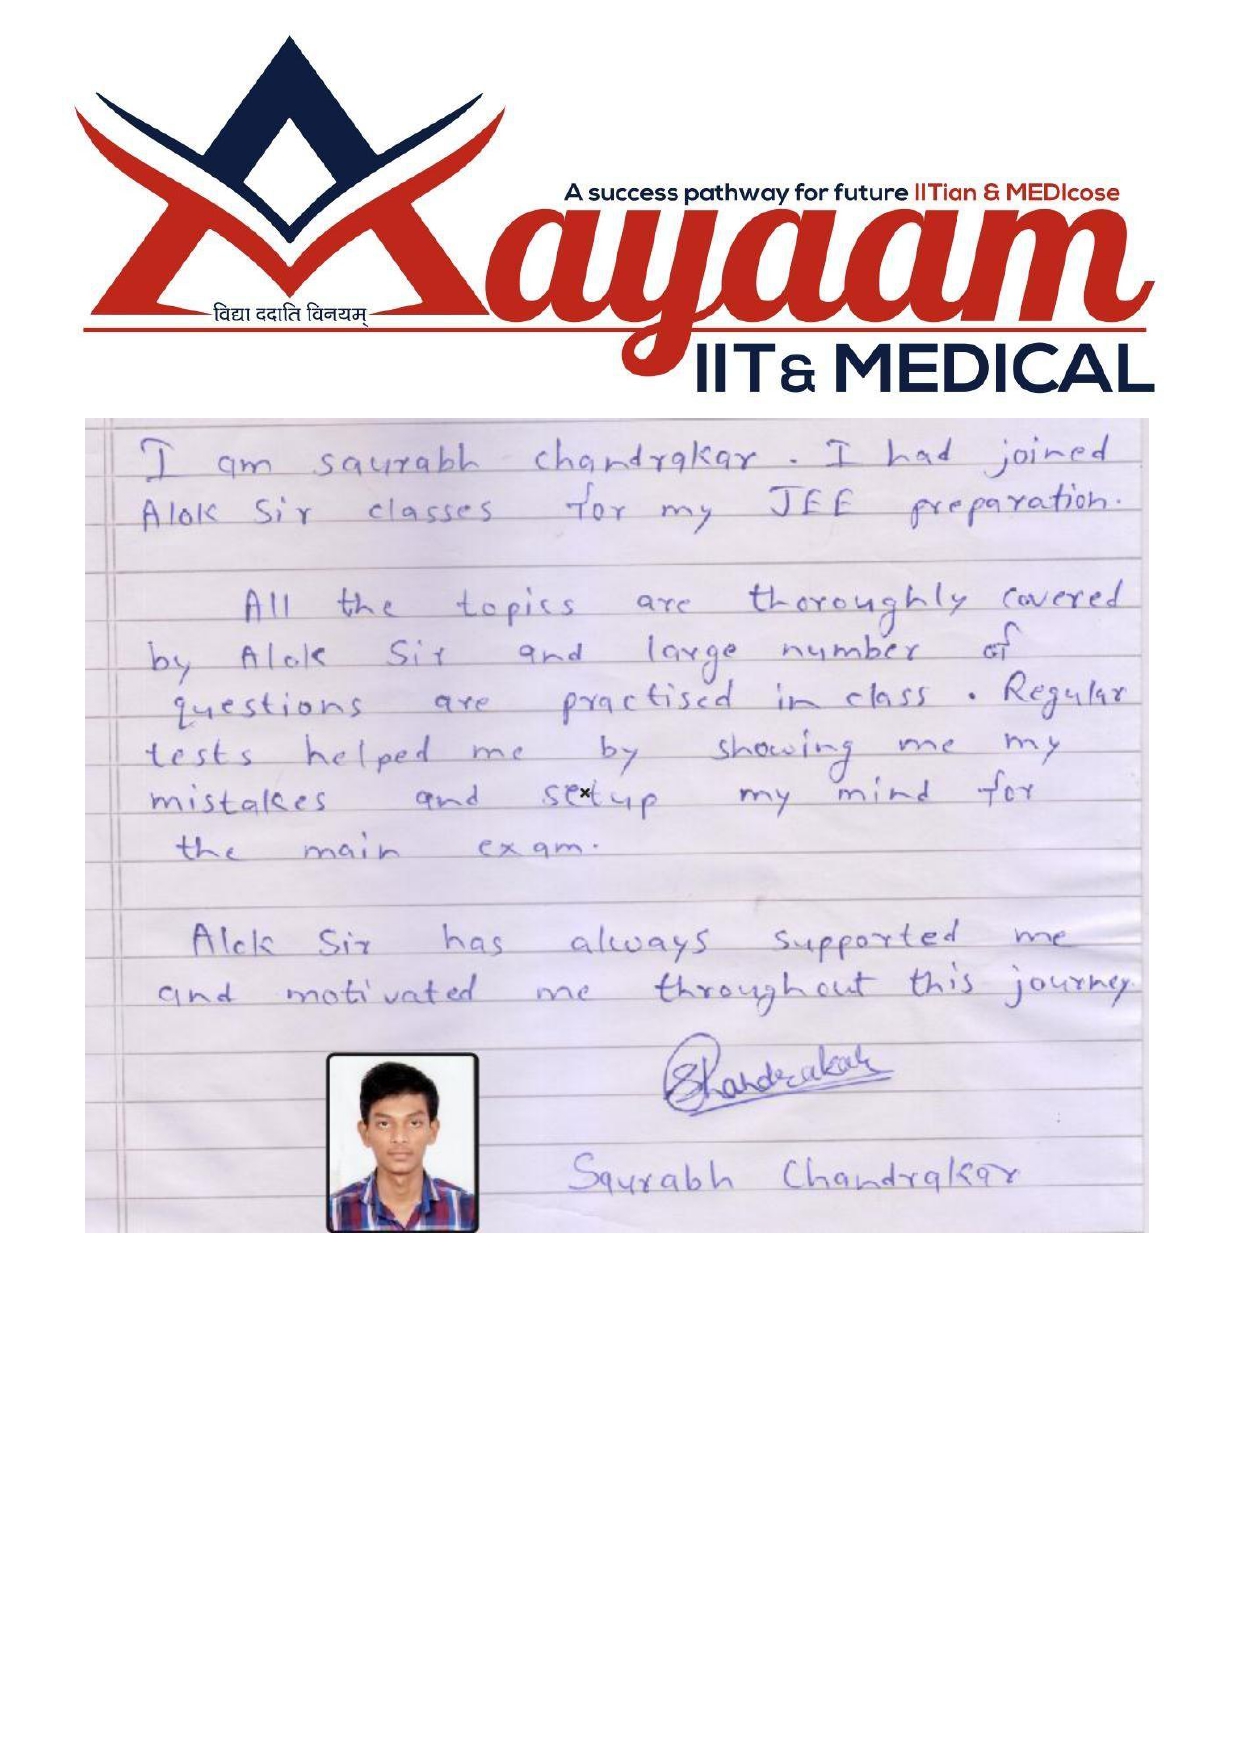 A success pathway for future IITian & MEDIcose
Aayaam
विद्या ददाति विनयम्
IIT & MEDICAL
I am saurabh chandrakar. I had joined
Alok Sir classes for my JEE preparation.
All the topics are thoroughly covered
by Alok Sir and large number of
questions are practised in class. Regular
tests helped me by showing me my
mistakes and setup my mind for
the main exam.
Alok Sir has always supported me
and motivated me throughout this journey.
SChandrakar
Saurabh Chandrakar